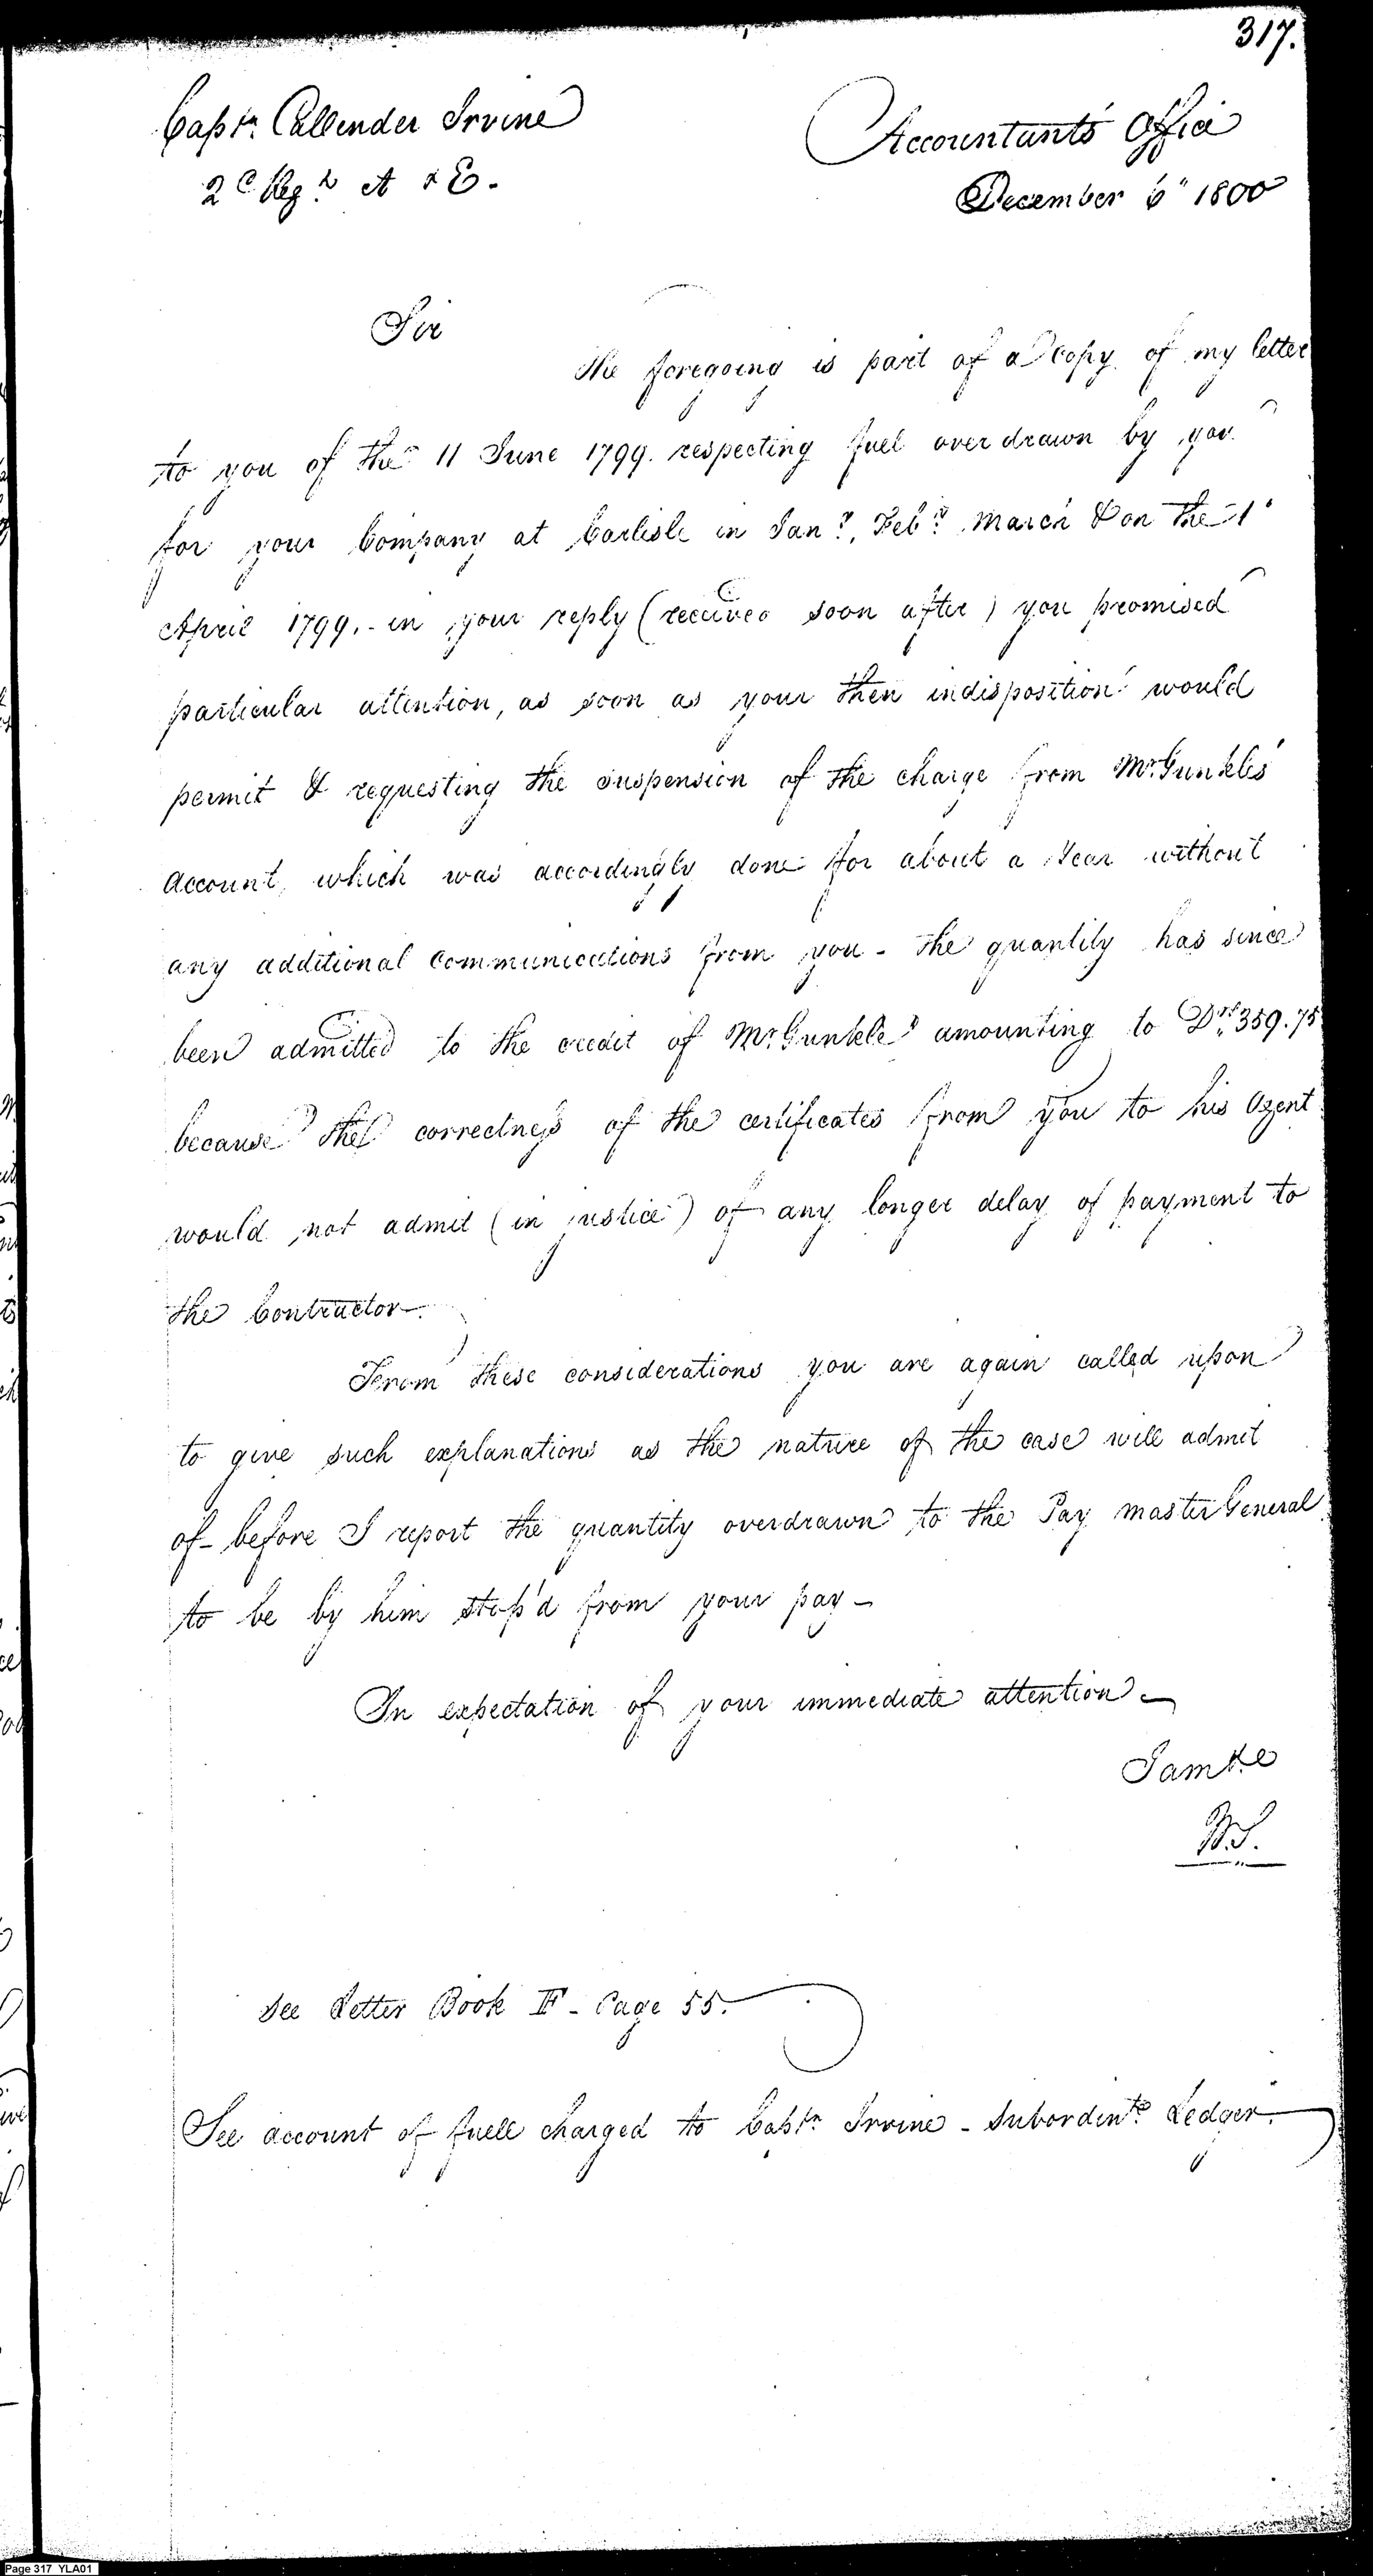 317.
Capt.n Callender Irvine
Accountants Office
2.d Reg.t A & E.
December 6" 1800
Sir
The foregoing is part of a copy of my letter
to you of the 11 June 1799. respecting fuel over drawn by you
for your Company at Carlisle in Jan.y, Feb.y March & on the 1
April 1799. - in your reply (received soon after) you promised
particular attention, as soon as your then indisposition would
permit & requesting the suspension of the charge from Mr. Gunkles
account, which was accordingly done for about a Year without
any additional communications from you - The quantity has since
been admitted to the credit of Mr. Gunkle amounting to D.rs 359.75
because the correctness of the certificates from you to his Agent
would not admit (in justice) of any longer delay of payment to
the Contractor.
From these considerations you are again called upon
to give such explanations as the nature of the case will admit
of - before I report the quantity overdrawn to the Pay master General
to be by him stop'd from your pay -
In expectation of your immediate attention -
I am &c
W.S.
see Letter Book F - Page 55.
See account of fuell charged to Capt.n Irvine - Subordin.te Ledger.
Page 317 YLA01